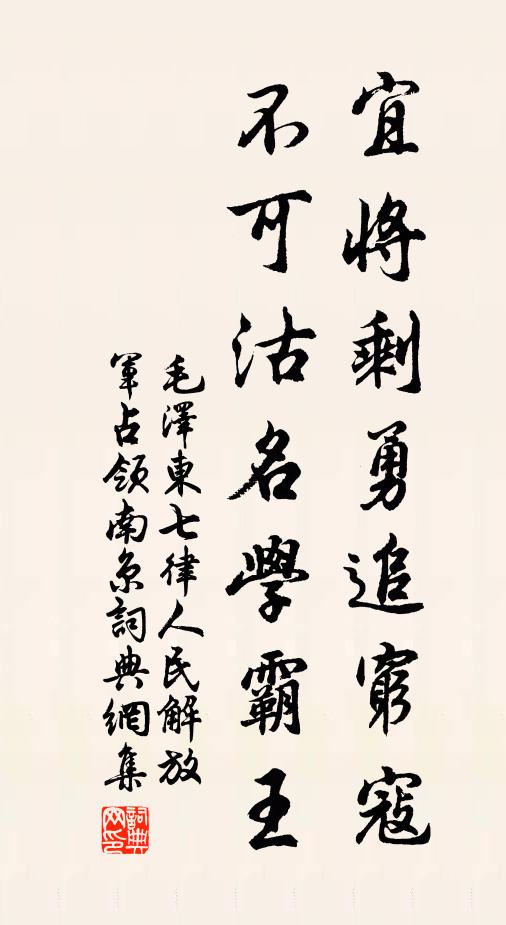 宜將剩勇追窮寇
不可沽名學霸王
毛澤東七律人民解放
軍占領南京詞典網集
詞典
网印